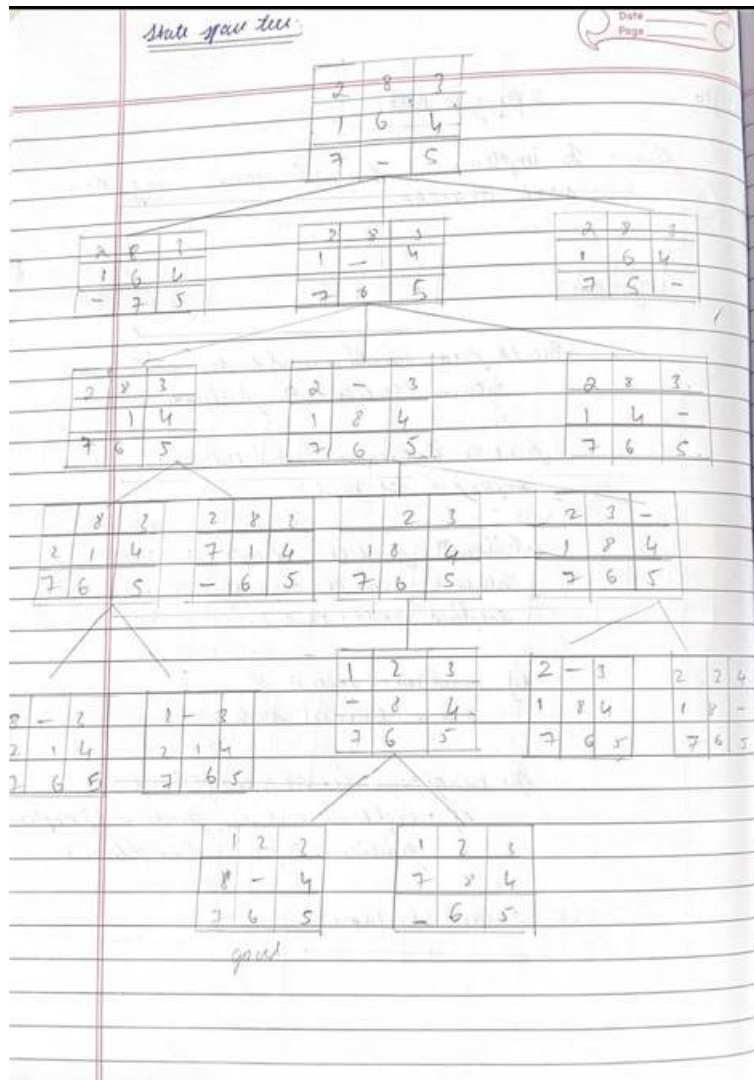 State space tree
Date
Page
2 8 3
1 6 4
7 - 5
2 8 3
1 6 4
- 7 5
2 8 3
1 - 4
7 6 5
2 8 3
1 6 4
7 5 -
2 8 3
1 4
7 6 5
2 - 3
1 8 4
7 6 5
2 8 3
1 4 -
7 6 5
8 3
2 1 4
7 6 5
2 8 3
7 1 4
- 6 5
2 3
1 8 4
7 6 5
2 3 -
1 8 4
7 6 5
8 - 3
2 1 4
7 6 5
- 3
2 1 4
7 6 5
1 2 3
- 8 4
7 6 5
2 - 3
1 8 4
7 6 5
2 4
1 8 -
7 6 5
1 2 3
8 - 4
7 6 5
1 2 3
7 8 4
- 6 5
goal